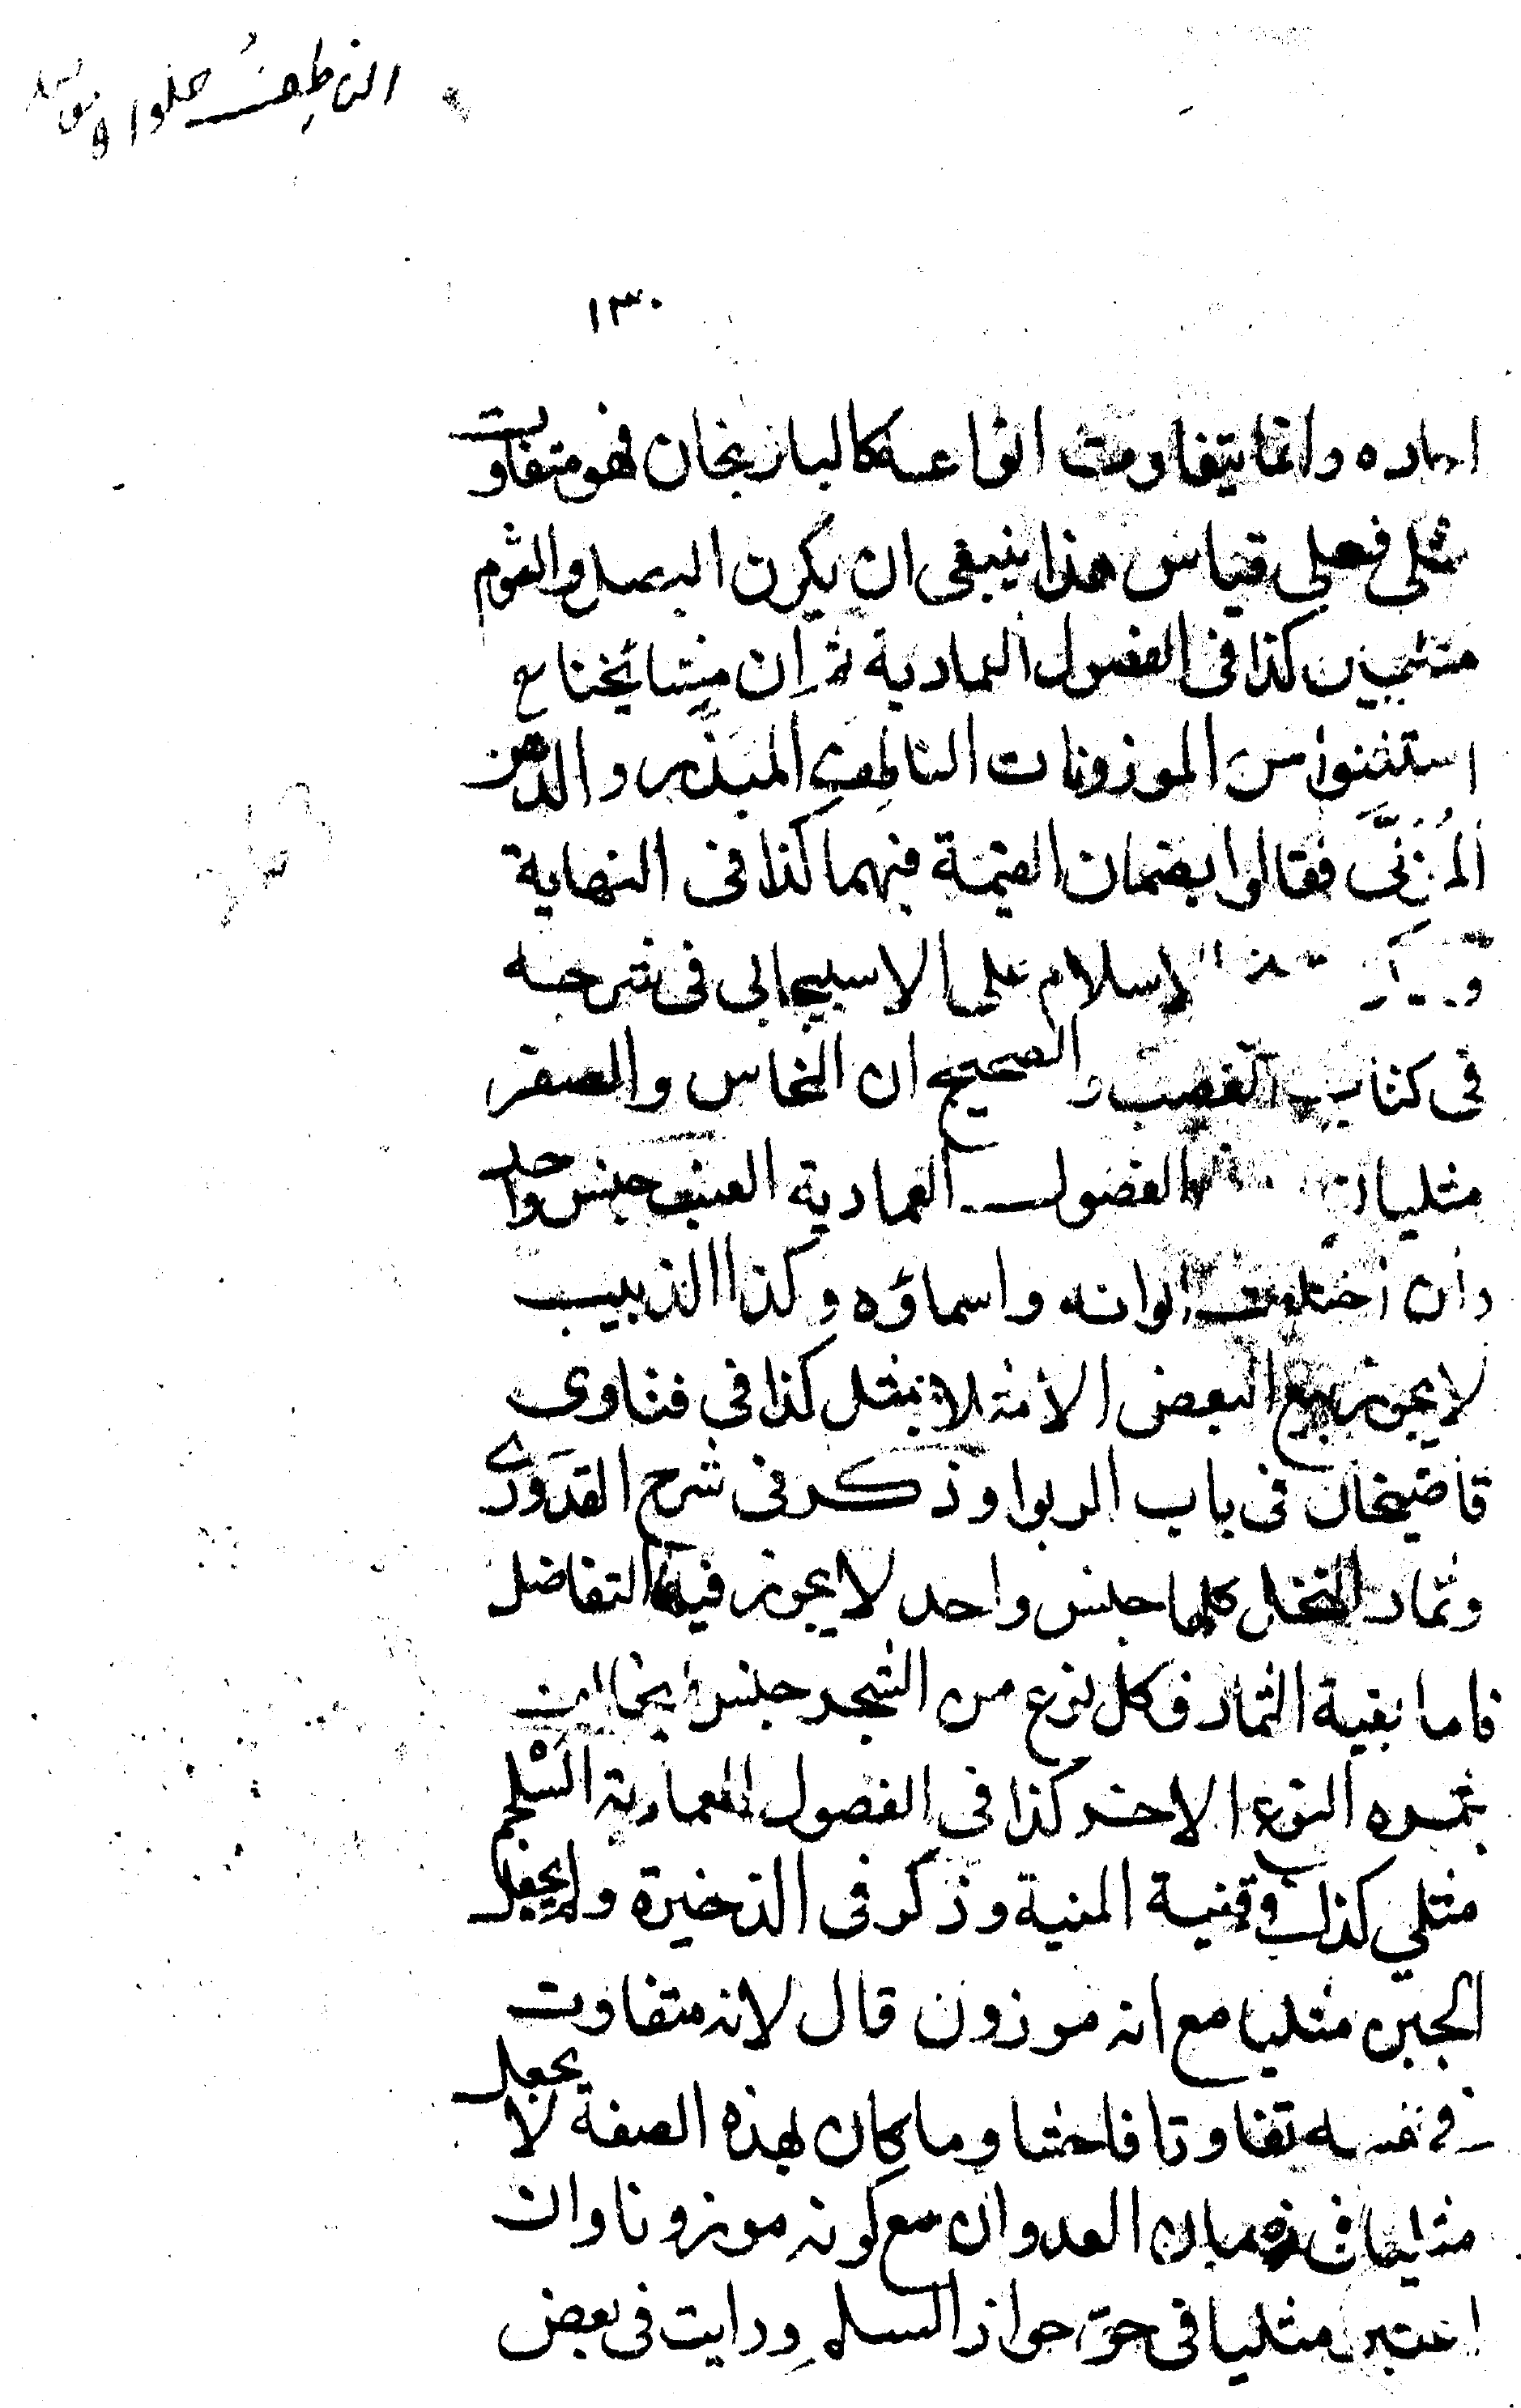 الناطف حلوا
١٣٠
احاده وانما يتفاوت انواعه كالباذنجان فهو متفاوت
مثلى فعلى قياس هذا ينبغى ان يكون البصل والثوم
مثليين كذا فى الفصول العمادية ثم ان مشايخنا رح
استثنوا من الموزونات الناطف المبذر والدهن
المربى فقالوا بضمان القيمة فيهما كذا فى النهاية
الاسلام على الاسبيجابى فى شرحه
فى كتاب الغصب والصحيح ان النحاس والصفر
مثليان الفصول العمادية العنب جنس واحد
وان اختلفت الوانه واسماؤه وكذا الذبيب
لا يجوز بيع البعض الا مثلا بمثل كذا فى فتاوى
قاضيخان فى باب الربوا وذكر فى شرح القدورى
وثمار النخل كلها جنس واحد لا يجوز فيه التفاضل
فاما بقية الثمار فكل نوع من الشجر جنس يخالف
ثمره النوع الاخر كذا فى الفصول العمادية الشلجم
مثلي كذا فى قنية المنية وذكر فى الذخيرة ولم يجعل
الجبن مثليا مع انه موزون قال لانه متفاوت
فى نفسه تفاوتا فاحشا وما كان بهذه الصفة لا يجعل
مثليا فى ضمان العدوان مع كونه موزونا وان
اعتبر مثليا فى حق جواز السلم ورايت فى بعض